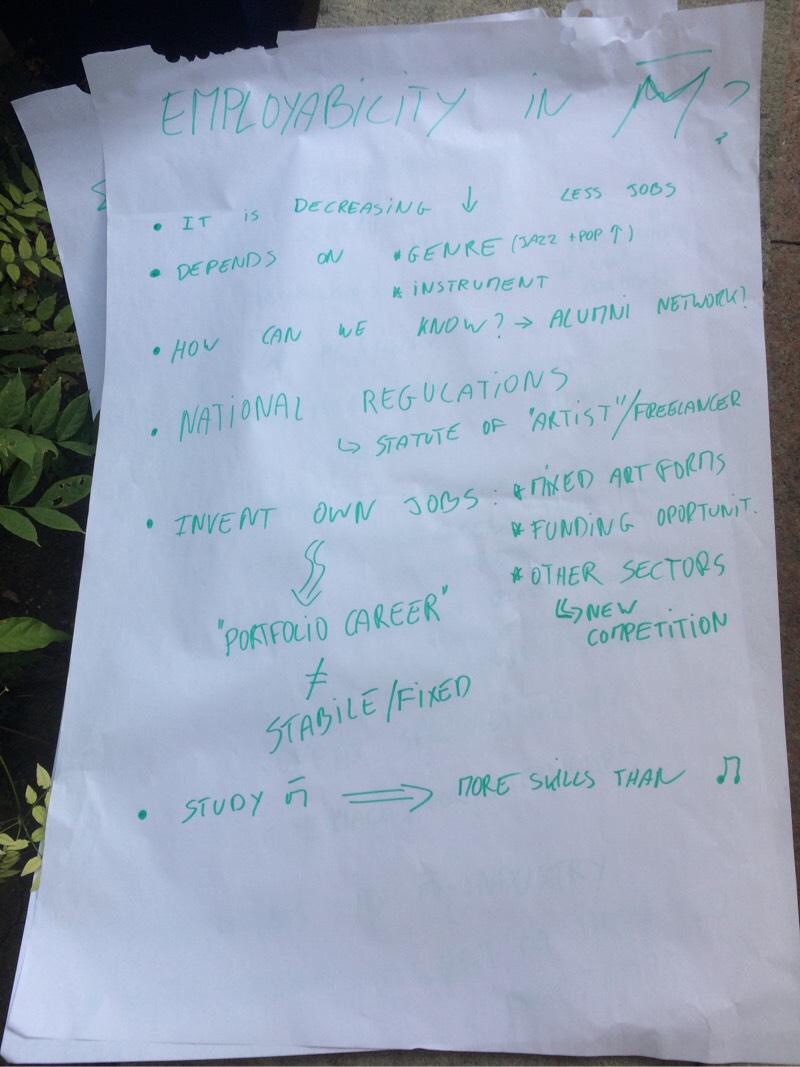 EMPLOYABILITY IN M̅?
• IT IS DECREASING ↓ LESS JOBS
• DEPENDS ON * GENRE (JAZZ + POP ↑)
* INSTRUMENT
• HOW CAN WE KNOW? → ALUMNI NETWORK?
• NATIONAL REGULATIONS
↳ STATUTE OF "ARTIST"/FREELANCER
• INVENT OWN JOBS: * MIXED ART FORMS
* FUNDING OPORTUNIT.
* OTHER SECTORS
↳ NEW
COMPETITION
"PORTFOLIO CAREER"
≠
STABILE/FIXED
• STUDY M̅ ⟹ MORE SKILLS THAN ♫